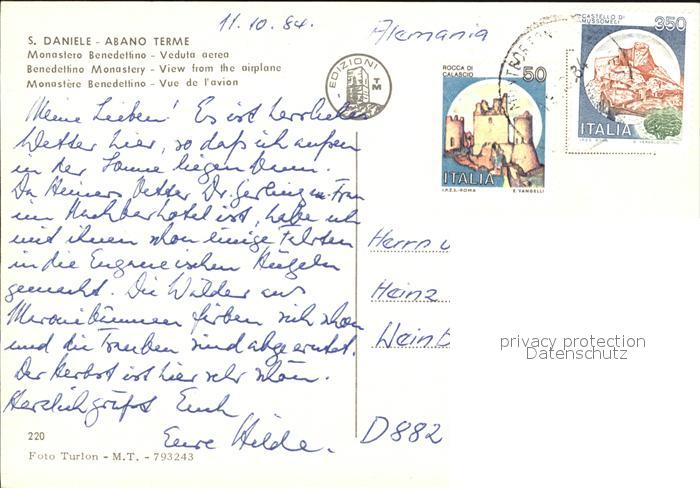 11.10.84.
Alemania
S. DANIELE - ABANO TERME
Monastero Benedettino - Veduta aerea
Benedettino Monastery - View from the airplane
Monastère Benedettino - Vue de l'avion
EDIZIONI
TM
ROCCA DI
CALASCIO
50
ITALIA
I.P.Z.S. - ROMA E. VANGELLI
CASTELLO DI
MUSSOMELI
350
ITALIA
Meine Lieben! Es ist herrliches
Wetter hier, so daß ich außen
in der Sonne liegen kann.
Da Heiners Vetter Dr. Gerling m. Frau
im Nachbarhotel ist, habe ich
mit ihnen schon einige Fahrten
in die Euganeischen Hügeln
gemacht. Die Wälder aus
Maronibäumen färben sich schon
und die Trauben sind abgeerntet.
Der Herbst ist hier sehr schön.
Herzlich grüßt Euch
Eure Hilde.
Herrn u
Heinz
Weinb
D882
privacy protection
Datenschutz
220
Foto Turlon - M.T. - 793243